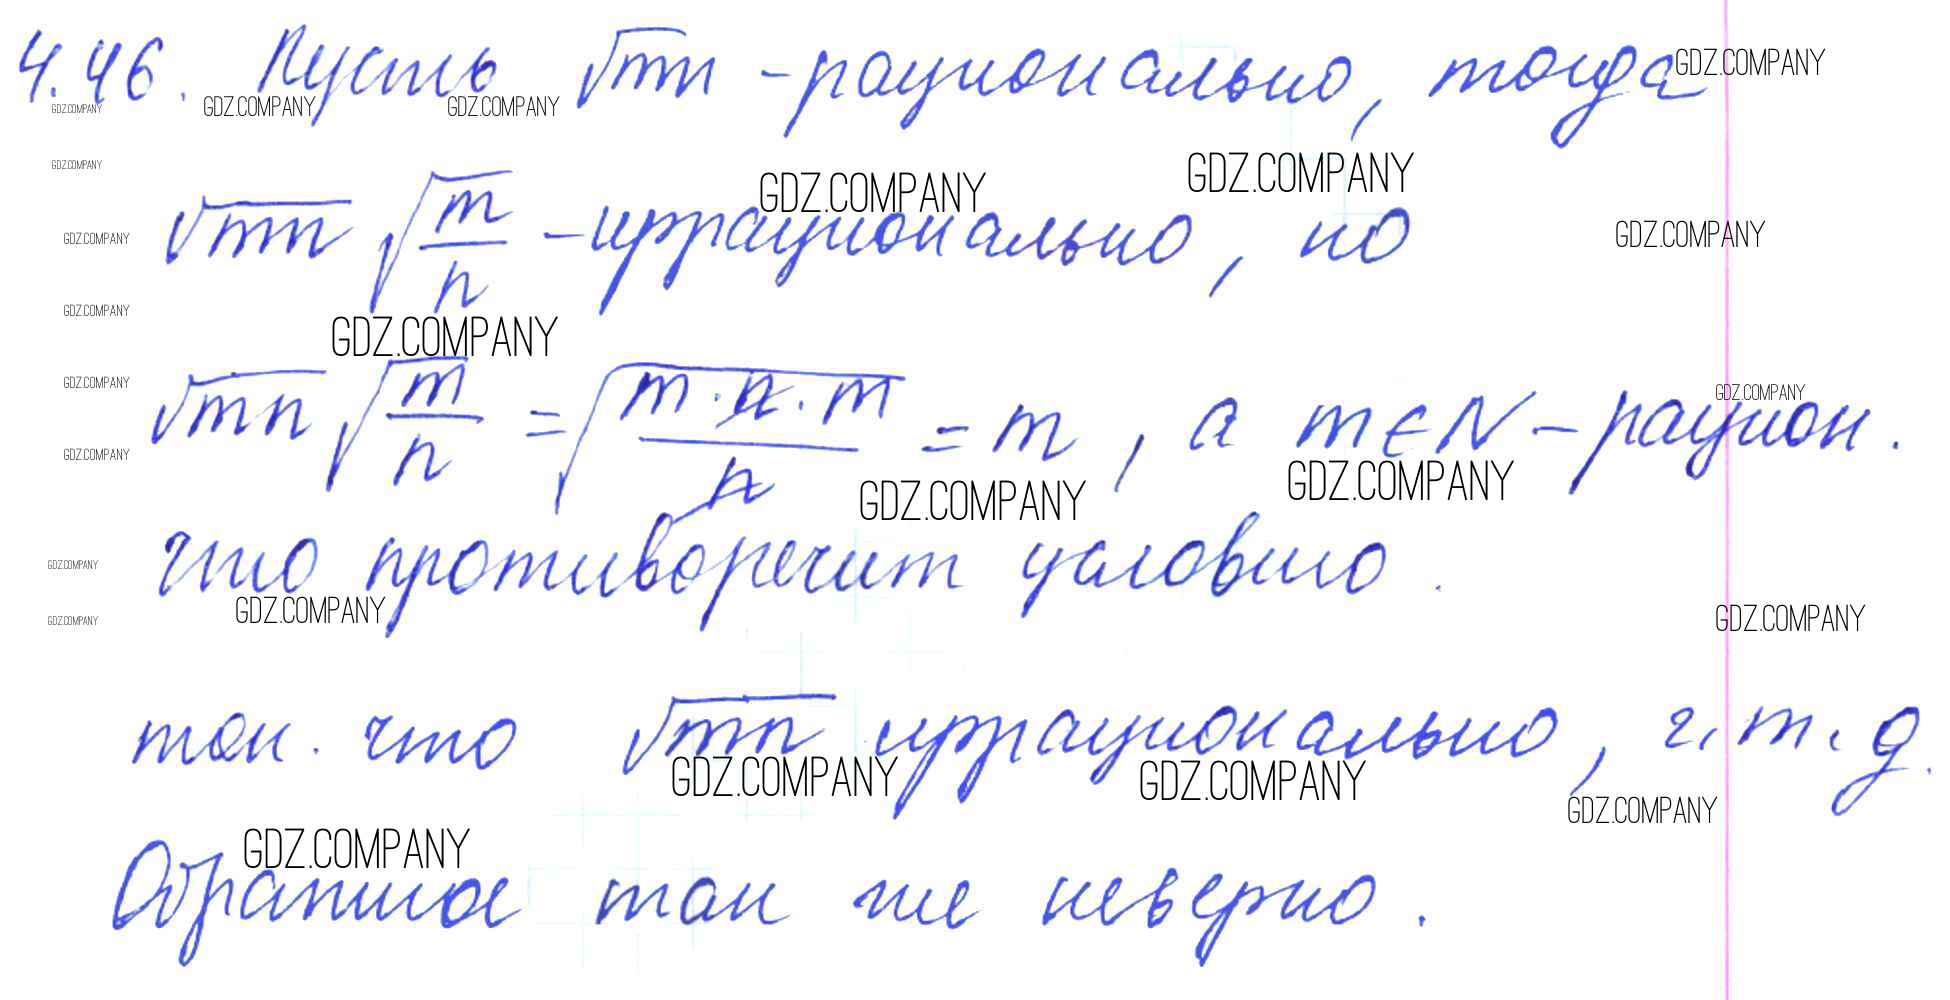 4.46. Пусть √mn - рационально, тогда GDZ.COMPANY
GDZ.COMPANY GDZ.COMPANY GDZ.COMPANY
GDZ.COMPANY GDZ.COMPANY GDZ.COMPANY
GDZ.COMPANY √mn √m/n - иррационально, но GDZ.COMPANY
GDZ.COMPANY GDZ.COMPANY
GDZ.COMPANY √mn √m/n = √m·n·m/n = m, а m∈N - рацион. GDZ.COMPANY
GDZ.COMPANY GDZ.COMPANY GDZ.COMPANY
GDZ.COMPANY что противоречит условию.
GDZ.COMPANY GDZ.COMPANY GDZ.COMPANY
так. что √mn иррационально, ч.т.д.
GDZ.COMPANY GDZ.COMPANY GDZ.COMPANY
GDZ.COMPANY
Обратное так же неверно.